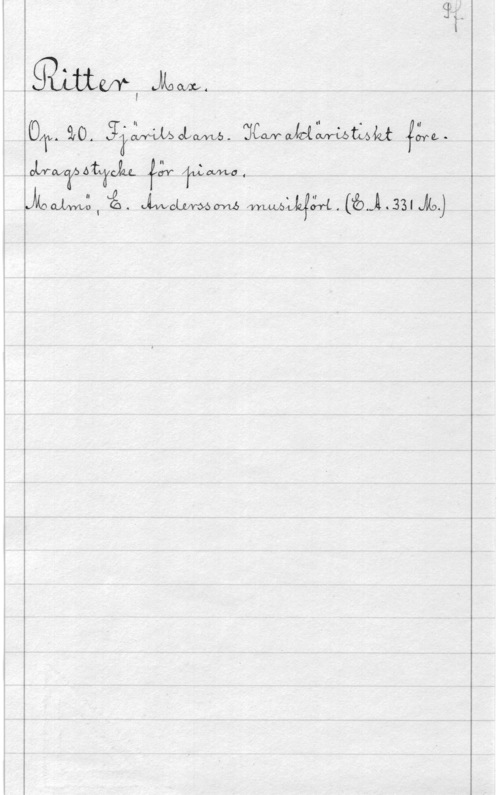 Pf.
Ritter, Max.
Op. 20. Fjärilsdans. Karaktäristiskt före-
dragsstycke för piano.
Malmö, E. Anderssons musikförl. (E.A. 331 M.)